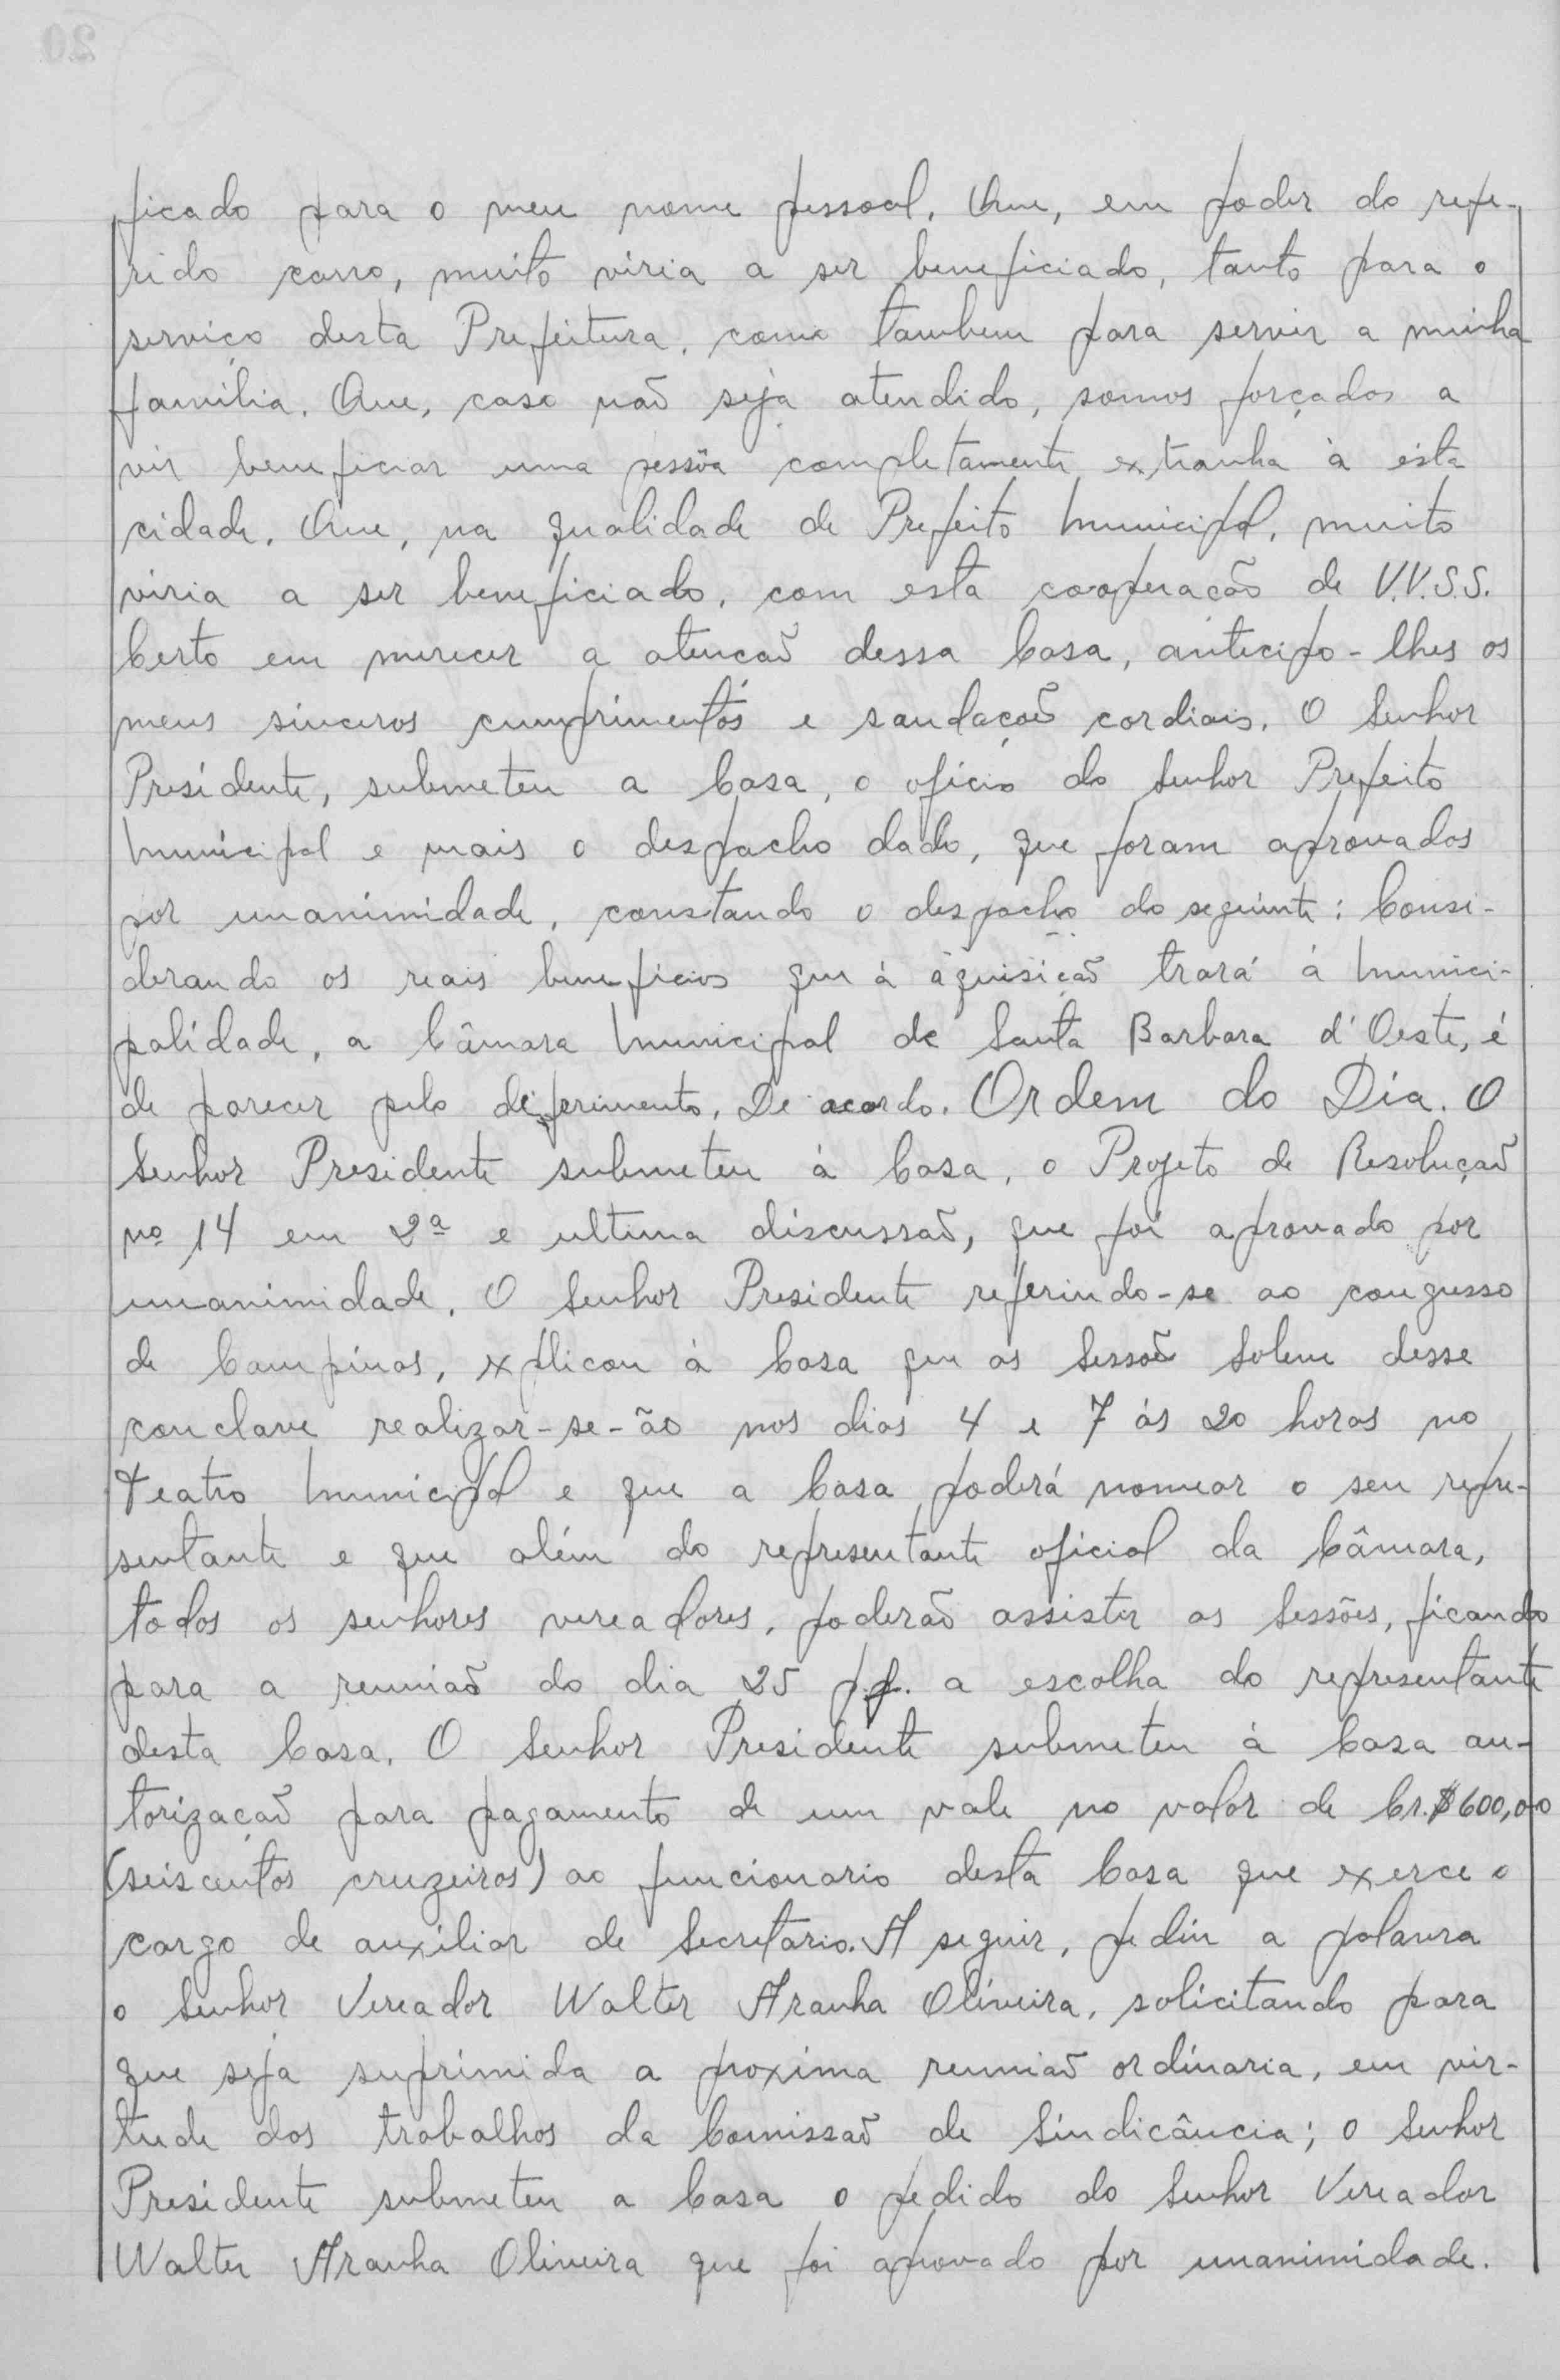 ficado para o meu nome pessoal. Que, em poder do refe-
rido carro, muito viria a ser beneficiado, tanto para o
serviço desta Prefeitura, como tambem para servir a minha
familia. Que, caso não seja atendido, somos forçados a
vir beneficiar uma pessôa completamente extranha à esta
cidade. Que, na qualidade de Prefeito Municipal, muito
viria a ser beneficiado, com esta cooperação de V.V.S.S.
Certo em merecer a atenção dessa Casa, antecipo-lhes os
meus sinceros cumprimentos e saudação cordiais. O Senhor
Presidente, submeteu a Casa, o oficio do Senhor Prefeito
Municipal e mais o despacho dado, que foram aprovados
por unanimidade, constando o despacho do seguinte: Consi-
derando os reais beneficios que à aquisição trará á Munici-
palidade, a Câmara Municipal de Santa Barbara d'Oeste, é
de parecer pelo deferimento. De acordo. Ordem do Dia. O
Senhor Presidente submeteu à Casa, o Projeto de Resolução
nº 14 em 2ª e ultima discussão, que foi aprovado por
unanimidade. O Senhor Presidente referindo-se ao congresso
de Campinas, explicou à Casa que as Sessão Solene desse
conclave realizar-se-ão nos dias 4 e 7 ás 20 horas no
Teatro Municipal e que a Casa poderá nomear o seu repre-
sentante e que além do representante oficial da Câmara,
todos os senhores vereadores, poderão assistir as Sessões, ficando
para a reunião do dia 25 p.p. a escolha do representante
desta Casa. O Senhor Presidente submeteu à Casa au-
torização para pagamento de um vale no valor de Cr.$600,00
(seiscentos cruzeiros) ao funcionario desta Casa que exerce o
cargo de auxiliar de Secretario. A seguir, pediu a palavra
o Senhor Vereador Walter Aranha Oliveira, solicitando para
que seja suprimida a proxima reunião ordinaria, em vir-
tude dos trabalhos da Comissão de Sindicância; o Senhor
Presidente submeteu a Casa o pedido do Senhor Vereador
Walter Aranha Oliveira que foi aprovado por unanimidade.